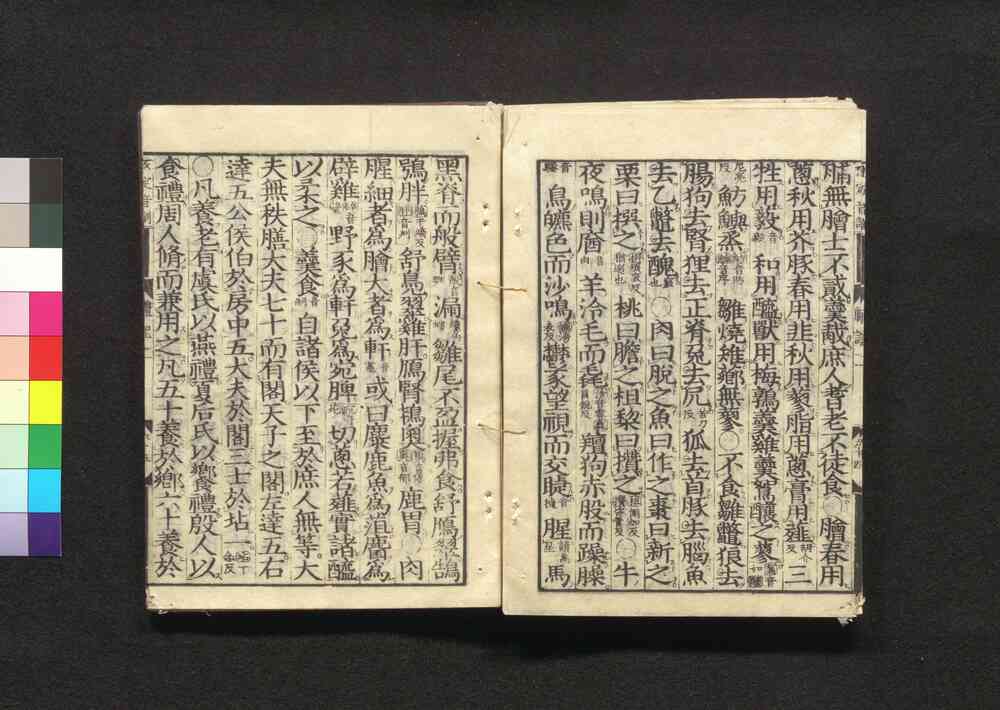 脯無膾士不貳羹胾庶人耆老不徒食○膾春用
蔥秋用芥豚春用韭秋用蓼脂用蔥膏用薤三
牲用藙和用醯獸用梅鶉羹雞羹鴽釀之蓼
魴鱮烝雛燒雉薌無蓼○不食雛鼈狼去
腸狗去腎狸去正脊兔去尻狐去首豚去腦魚
去乙鼈去醜○肉曰脫之魚曰作之棗曰新之
栗曰撰之桃曰膽之柤棃曰攢之○牛
夜鳴則庮羊泠毛而毳羶狗赤股而躁臊
鳥皫色而沙鳴鬱豕望視而交睫腥馬
黑脊而般臂漏雛尾不盈握弗食舒鴈翠鵠
鴞胖舒鳧翠雞肝鴈腎鴇奧鹿胃○肉
腥細者爲膾大者爲軒或曰麋鹿魚爲菹麕爲
辟雞野豕爲軒兔爲宛脾切蔥若薤實諸醯
以柔之○羹食自諸侯以下至於庶人無等大
夫無秩膳大夫七十而有閣天子之閣左達五右
達五公侯伯於房中五大夫於閣三士於坫一
○凡養老有虞氏以燕禮夏后氏以饗禮殷人以
食禮周人脩而兼用之凡五十養於鄉六十養於